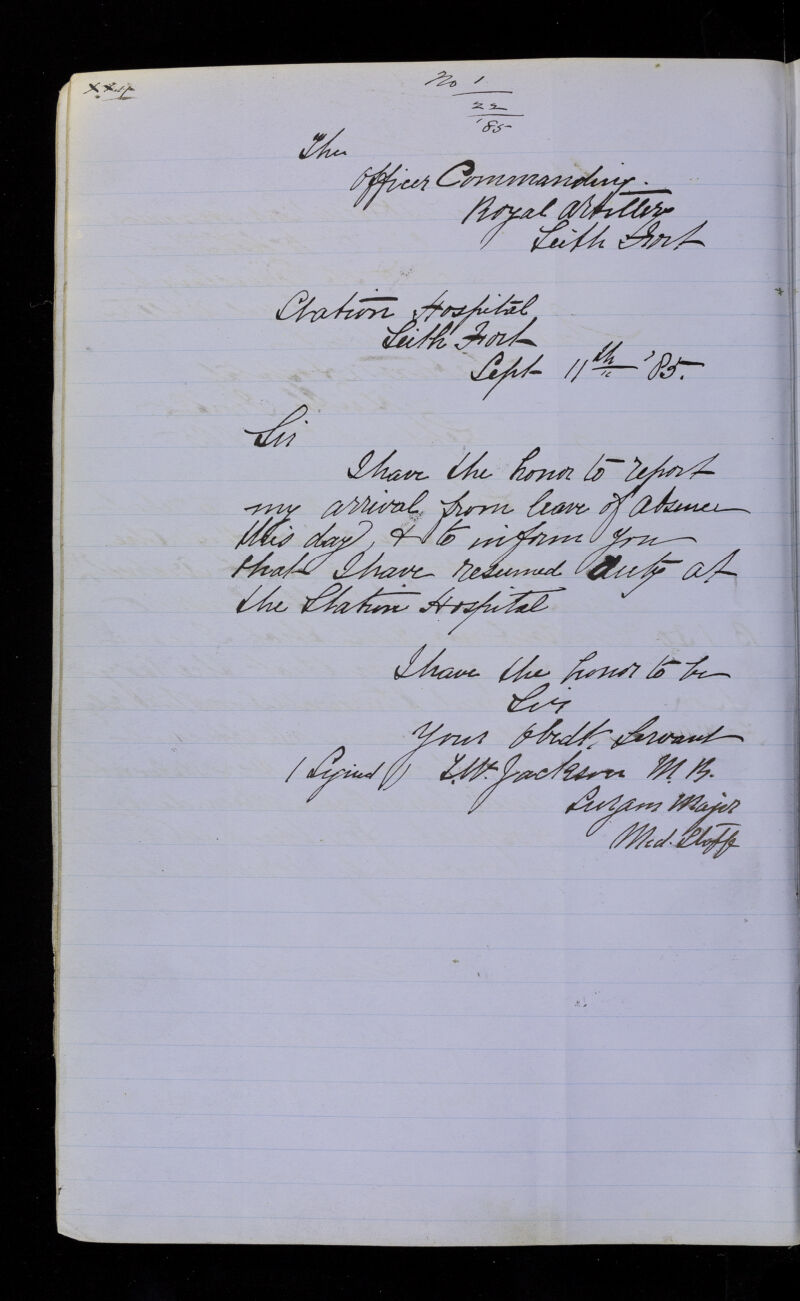 No 1
22
'85
The
Officer Commanding.
Royal Artillery
Leith Fort
Station Hospital
Leith Fort
Sept 11th '85.
Sir
I have the honor to report
my arrival from leave of absence
this day, & to inform you
that I have resumed duty at
the Station Hospital
I have the honor to be
Sir
Your Obedt. Servant
(Signed) Jackson M.B.
Surgeon Major
Med. Staff